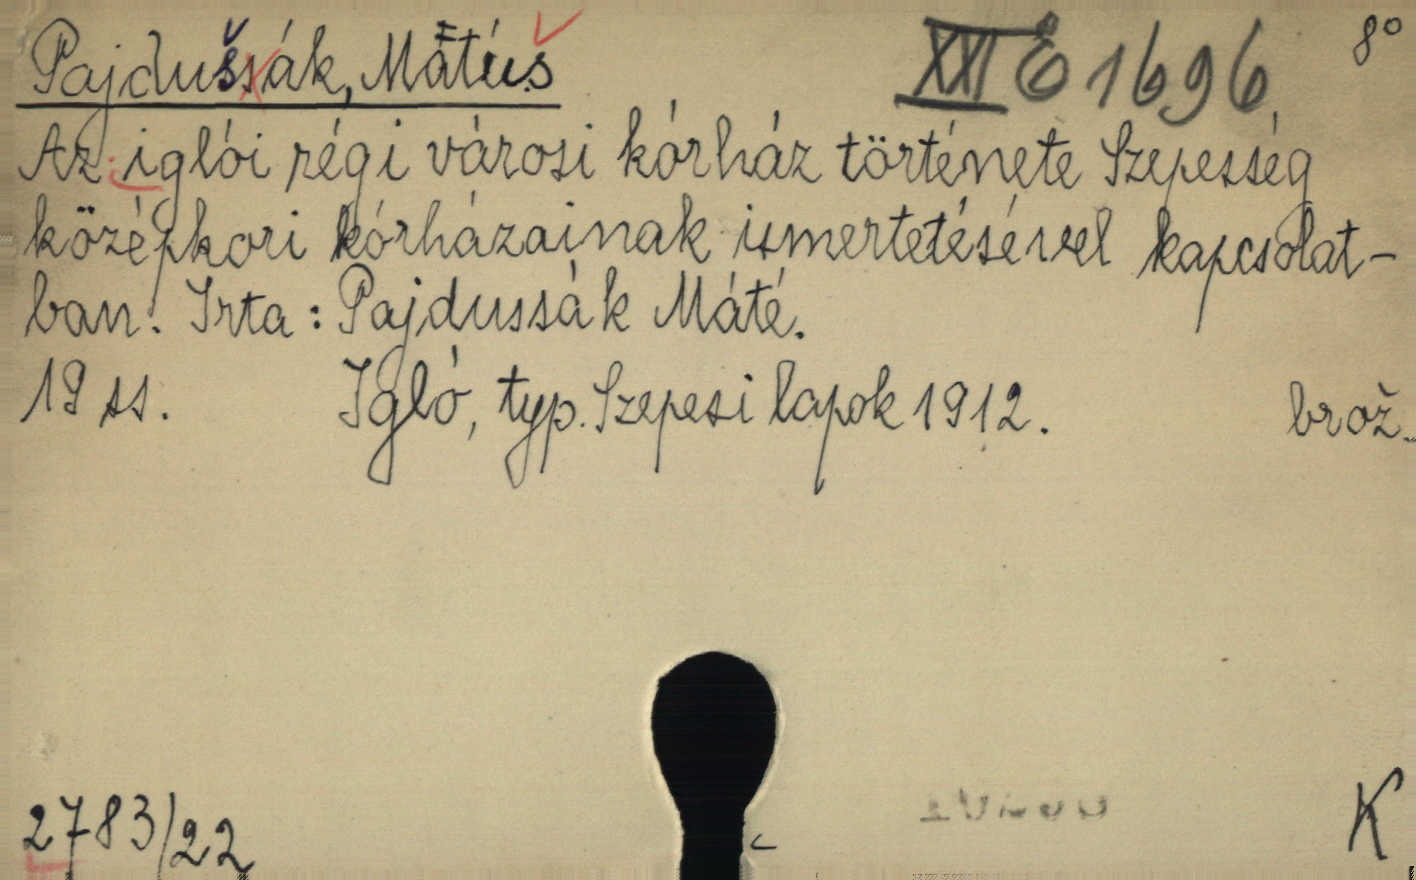 Pajduššák, Mátúš XXI E 1696 8°
Az iglói régi városi kórház története Szepesség
középkori kórházainak ismertetésével kapcsolat-
ban. Irta: Pajdussák Máté.
19 ss. Igló, typ. Szepesi lapok 1912. brož.
2783/22 K